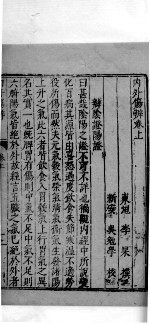 內外傷辨卷上
東垣 李杲 撰
新安 吳勉學 校
辯陰證陽證
曰甚哉陰陽之證不可不詳也徧觀內經中所說變
化百病其源皆由喜怒過度飲食失節寒溫不適勞
役所傷而然夫元氣穀氣榮氣清氣衛氣生發諸陽
上升之氣此六者皆飲食入胃穀氣上行胃氣之異
名其實一也既脾胃有傷則中氣不足中氣不足則
六腑陽氣皆絕於外故經言五臟之氣已絕於外者